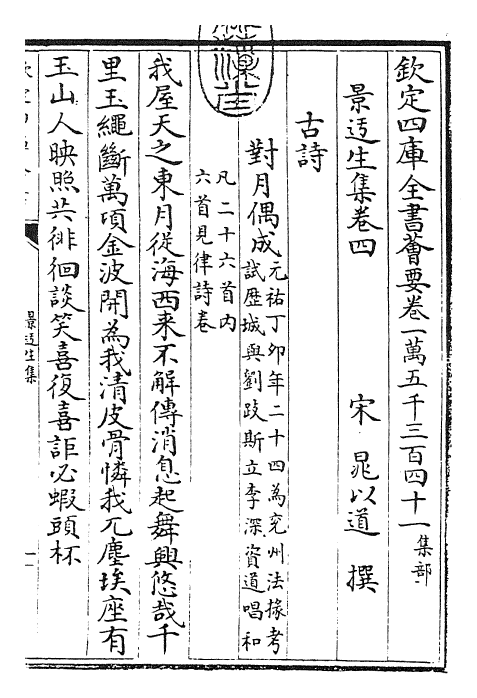 欽定四庫全書薈要卷一萬五千三百四十一集部
景迃生集卷四
宋 晁以道 撰
古詩
對月偶成元祐丁卯年二十四為兖州法掾考
試歴城與劉跂斯立李深資道唱和
凡二十六首内
六首見律詩卷
我屋天之東月從海西来不解傳消息起舞興悠哉千
里玉繩斷萬頃金波開為我清皮骨憐我兀塵埃座有
玉山人映照共徘徊談笑喜復喜詎必蝦頭杯
景迃生集
一